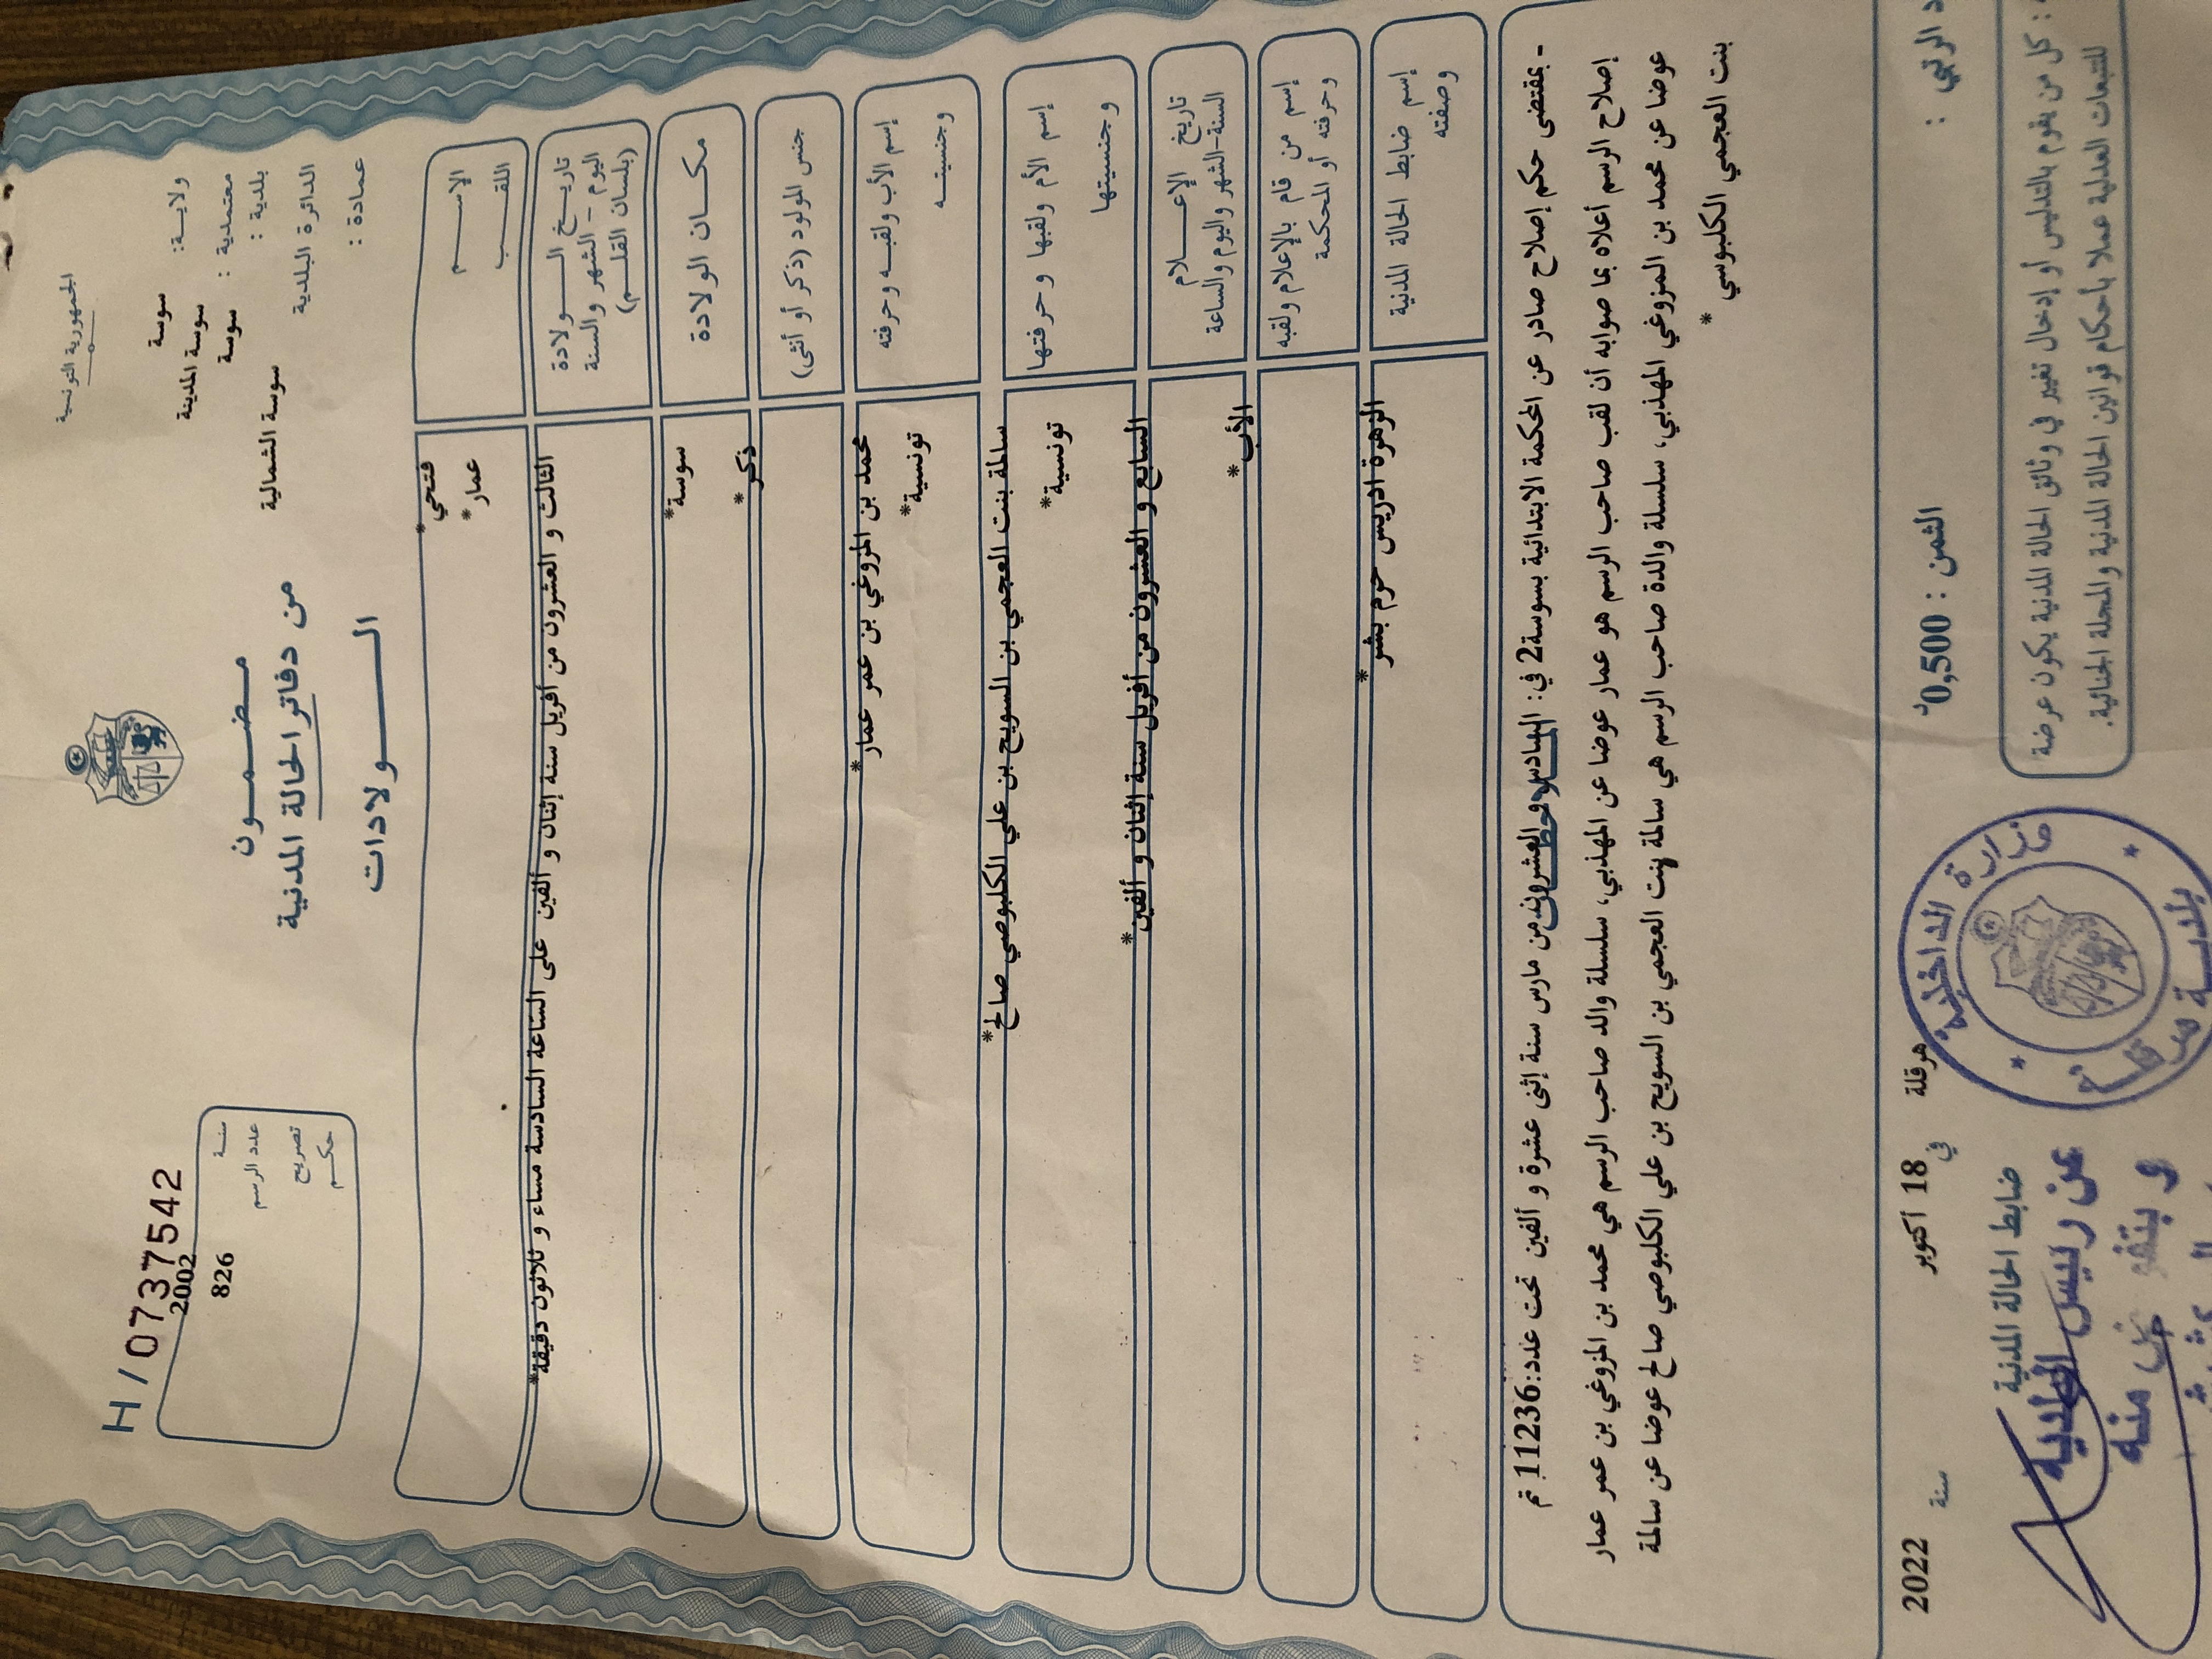 الجمهورية التونسية
H/0737542
ولاية: سوسة
معتمدية : سوسة المدينة
بلدية : سوسة
الدائرة البلدية سوسة الشمالية
عمادة :
مضمون
من دفاتر الحالة المدنية
الولادات
سنة 2002
عدد الرسم 826
تصريح
حكم
الاسم فتحي*
اللقب عمار*
تاريخ الولادة
اليوم - الشهر والسنة
(بلسان القلم)
الثالث و العشرون من أفريل سنة إثنان و ألفين على الساعة السادسة مساء و ثلاثون دقيقة*
مكان الولادة سوسة*
جنس المولود (ذكر أو أنثى) ذكر*
إسم الأب ولقبه وحرفته محمد بن المزوغي بن عمر عمار*
وجنسيته تونسية*
إسم الأم ولقبها وحرفتها سالمة بنت العجمي بن السويح بن علي الكلبوصي صالح*
وجنسيتها تونسية*
تاريخ الإعلام
السنة-الشهر واليوم والساعة
السابع و العشرون من أفريل سنة إثنان و ألفين*
إسم من قام بالإعلام ولقبه
وحرفته أو المحكمة
الأب*
إسم ضابط الحالة المدنية
وصفته
الزهرة ادريس حرم بشر*
- بمقتضى حكم إصلاح صادر عن المحكمة الابتدائية بسوسة2 في: السادس و العشرون من مارس سنة إثنى عشرة و ألفين تحت عدد:11236 تم
إصلاح الرسم أعلاه بما صوابه أن لقب صاحب الرسم هو عمار عوضا عن المهذبي، سلسلة والد صاحب الرسم هي محمد بن المزوغي بن عمر عمار
عوضا عن محمد بن المزوغي المهذبي، سلسلة والدة صاحب الرسم هي سالمة بنت العجمي بن السويح بن علي الكلبوصي صالح عوضا عن سالمة
بنت العجمي الكلبوسي*
الثمن : 0,500د
هرقلة في 18 أكتوبر سنة 2022
كل من يقوم بالتدليس أو إدخال تغيير في وثائق الحالة المدنية يكون عرضة
للتتبعات العدلية عملا بأحكام قوانين الحالة المدنية والمجلة الجنائية.
ضابط الحالة المدنية
عن رئيس البلدية
و بتفويض منه
وزارة الداخلية
بلدية هرقلة